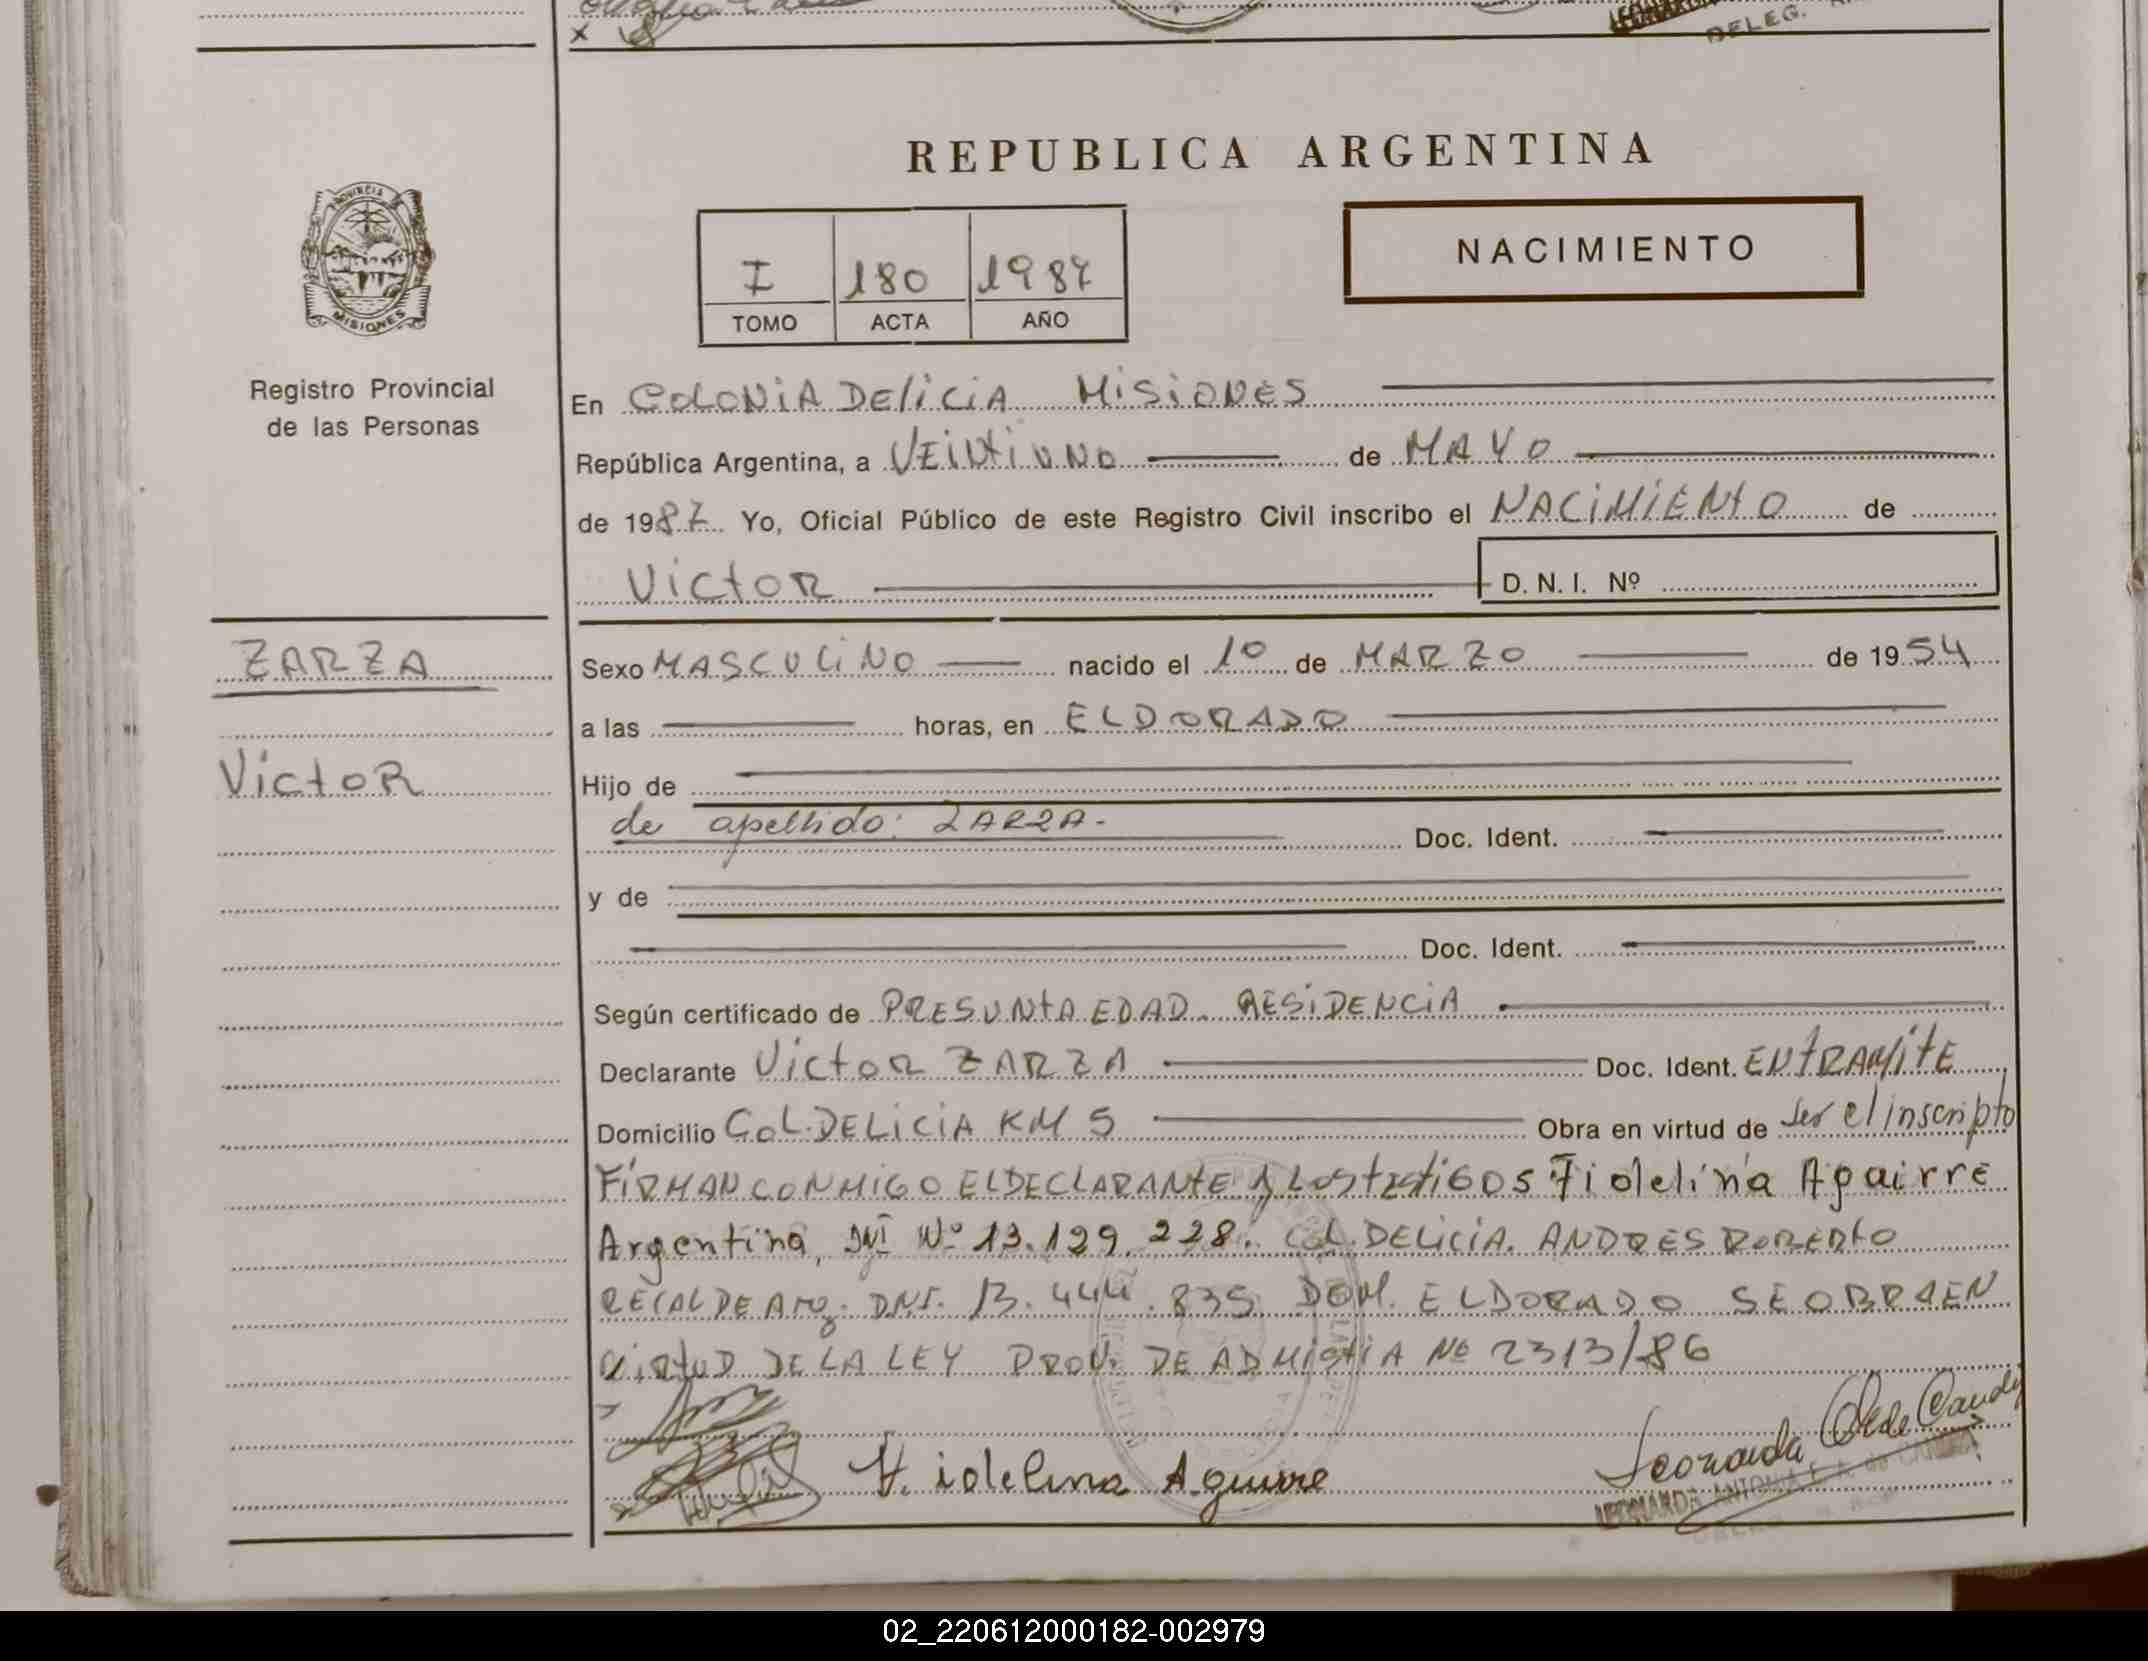 DELEG.
REPUBLICA ARGENTINA
PROVINCIA
MISIONES
I 180 1987
TOMO ACTA AÑO
NACIMIENTO
Registro Provincial
de las Personas
En COLONIA DELICIA MISIONES
República Argentina, a VEINTIUNO de MAYO
de 1987 Yo, Oficial Público de este Registro Civil inscribo el NACIMIENTO de
VICTOR D. N. I. Nº
ZARZA
Sexo MASCULINO nacido el 1º de MARZO de 1954
a las horas, en ELDORADO
Victor
Hijo de
de apellido: ZARZA.- Doc. Ident.
y de
Doc. Ident.
Según certificado de PRESUNTA EDAD. RESIDENCIA
Declarante Victor ZARZA Doc. Ident. EN TRAMITE
Domicilio COL. DELICIA KM 5 Obra en virtud de ser el inscripto
FIRMAN CONMIGO EL DECLARANTE y LOS testiGOS Fidelina Aguirre
Argentina, DNI Nº 13.129.228. COL. DELICIA. ANDRES ROBERTO
RECALDE Arg. DNI. 13.444.835 DOM. ELDORADO SE OBRA EN
VIRTUD DE LA LEY PROV. DE ADMISTIA Nº 2313/86
Fidelina Aguirre
Leonarda
LEONARDA ANTONIA
02_220612000182-002979